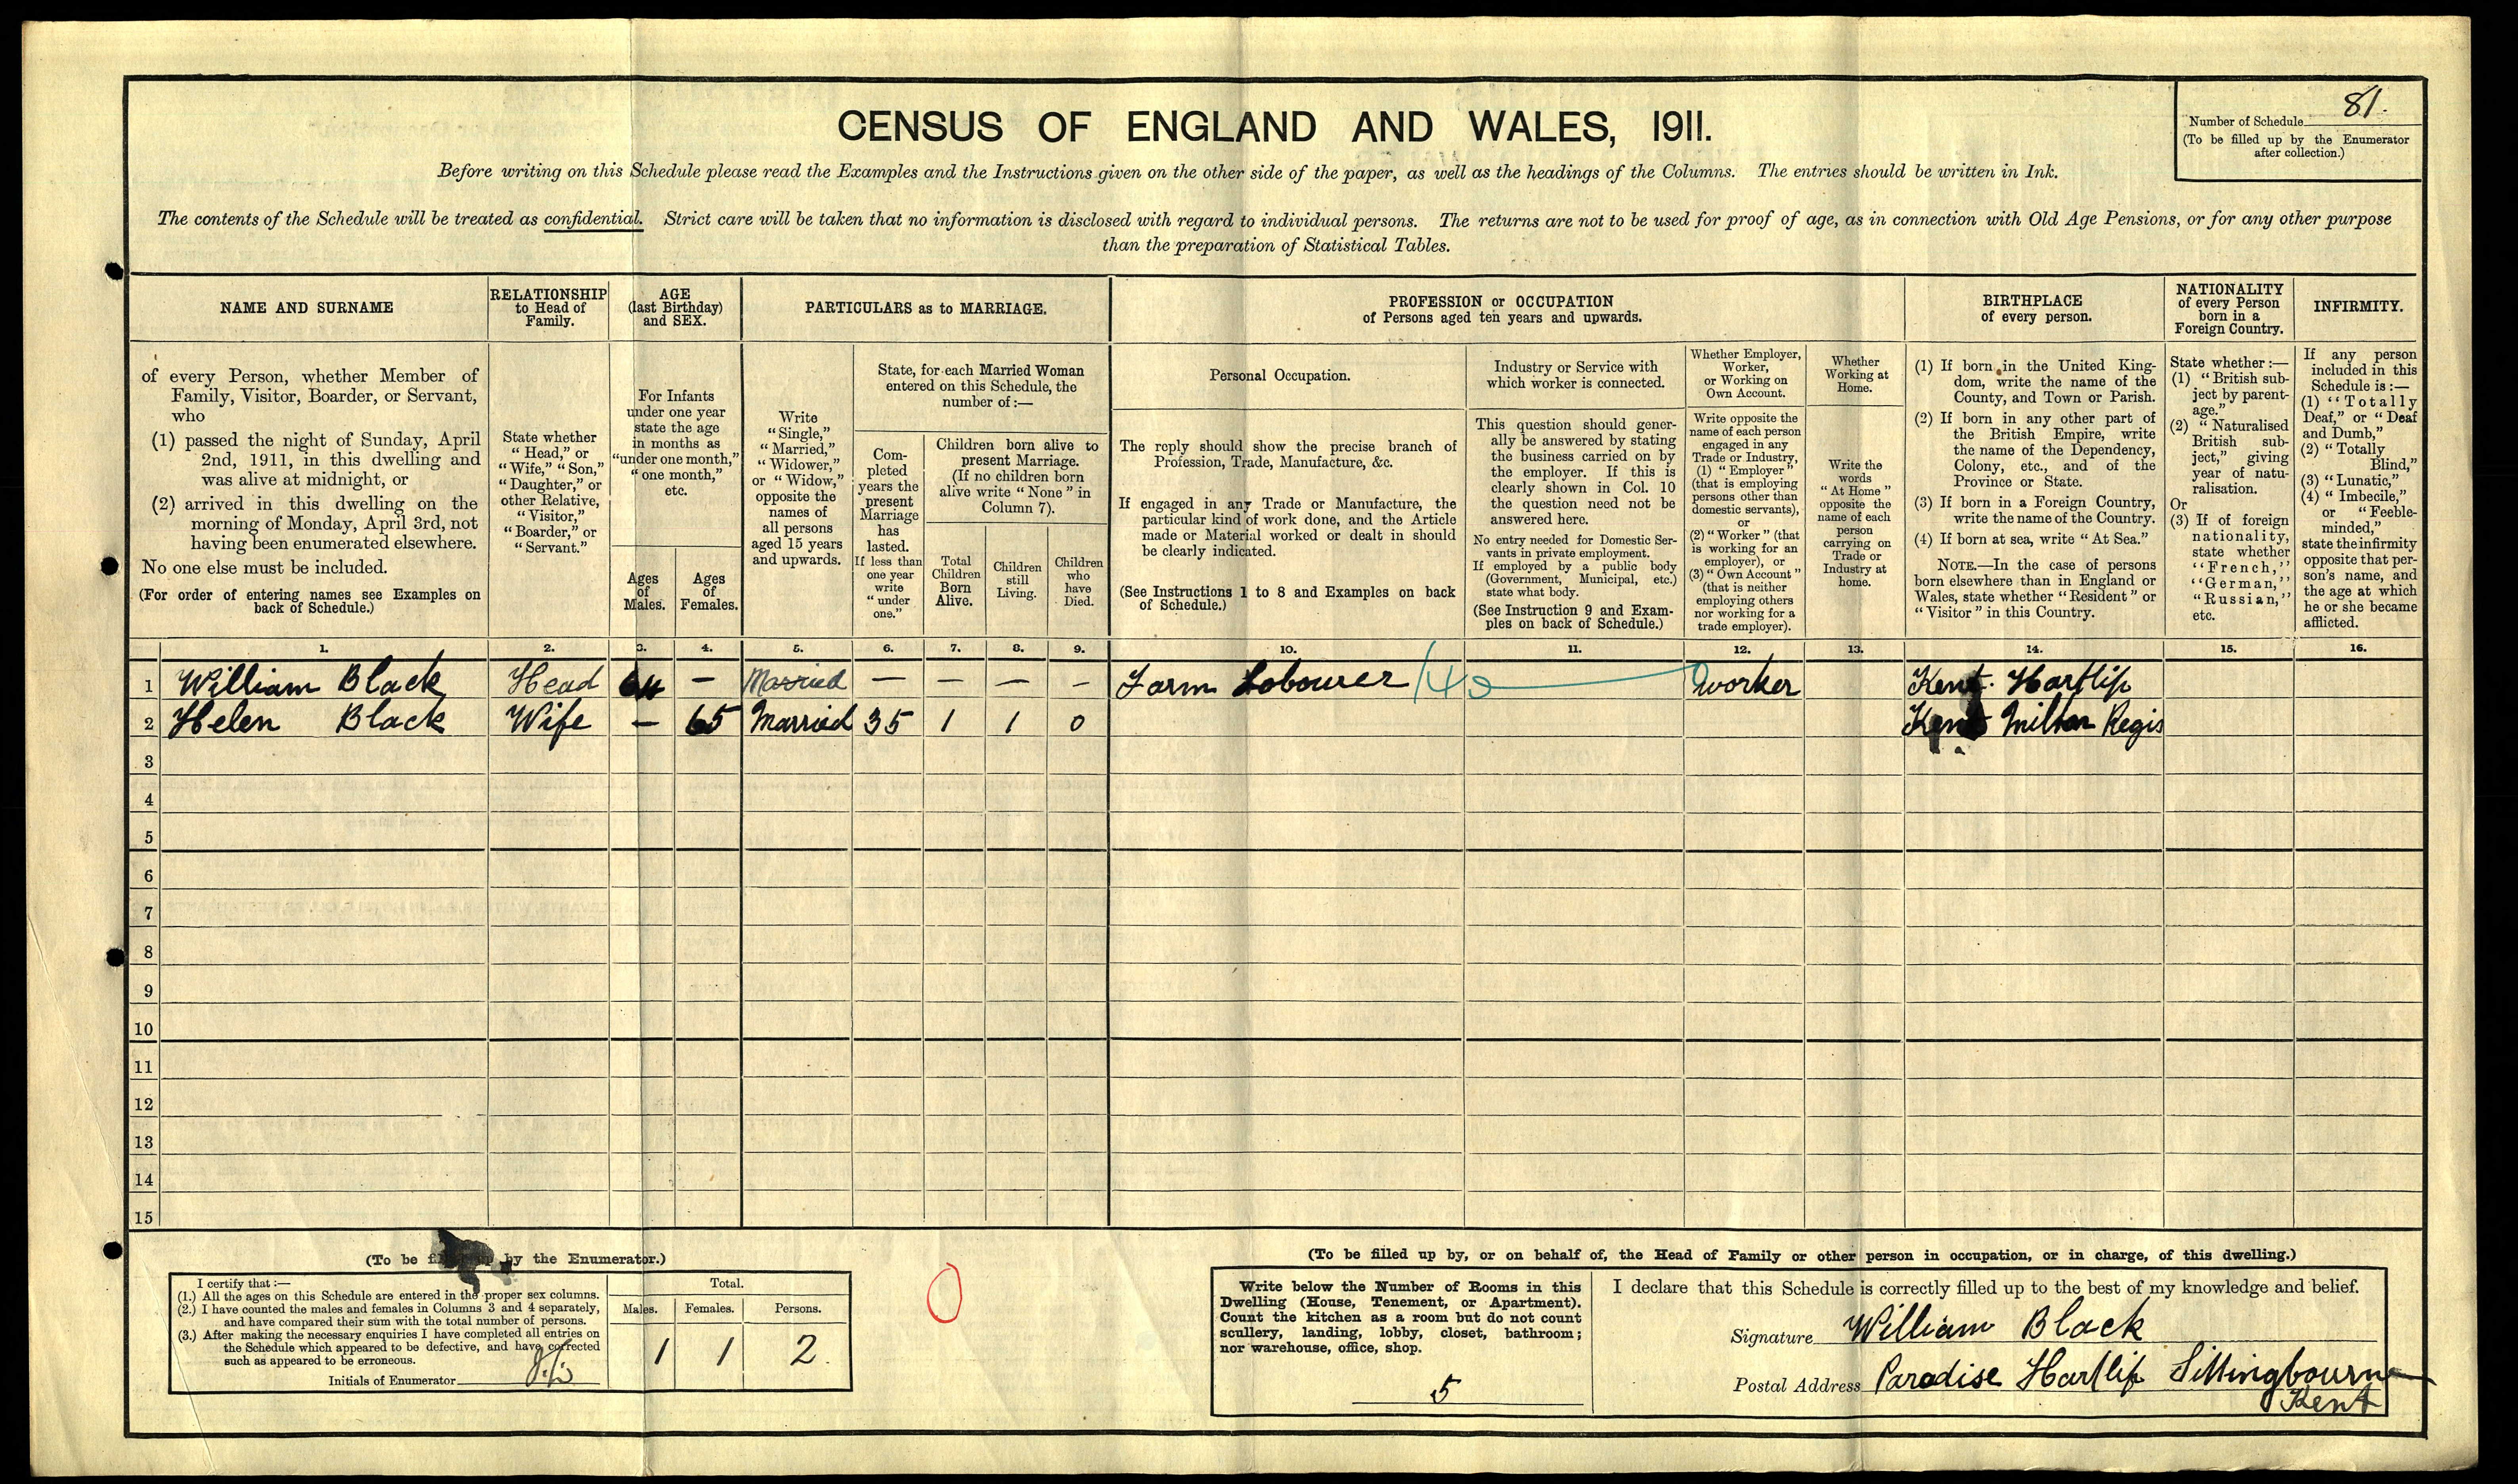 CENSUS OF ENGLAND AND WALES, 1911.
Number of Schedule 81.
(To be filled up by the Enumerator
after collection.)
Before writing on this Schedule please read the Examples and the Instructions given on the other side of the paper, as well as the headings of the Columns. The entries should be written in Ink.
The contents of the Schedule will be treated as confidential. Strict care will be taken that no information is disclosed with regard to individual persons. The returns are not to be used for proof of age, as in connection with Old Age Pensions, or for any other purpose
than the preparation of Statistical Tables.
NAME AND SURNAME
of every Person, whether Member of
Family, Visitor, Boarder, or Servant,
who
(1) passed the night of Sunday, April
2nd, 1911, in this dwelling and
was alive at midnight, or
(2) arrived in this dwelling on the
morning of Monday, April 3rd, not
having been enumerated elsewhere.
No one else must be included.
(For order of entering names see Examples on
back of Schedule.)
RELATIONSHIP
to Head of
Family.
State whether
"Head," or
"Wife," "Son,"
"Daughter," or
other Relative,
"Visitor,"
"Boarder," or
"Servant."
AGE
(last Birthday)
and SEX.
For Infants
under one year
state the age
in months as
"under one month,"
"one month,"
etc.
Ages
of
Males.
Ages
of
Females.
PARTICULARS as to MARRIAGE.
Write
"Single,"
"Married,"
"Widower,"
or "Widow,"
opposite the
names of
all persons
aged 15 years
and upwards.
State, for each Married Woman
entered on this Schedule, the
number of :—
Com-
pleted
years the
present
Marriage
has
lasted.
If less than
one year
write
"under
one."
Children born alive to
present Marriage.
(If no children born
alive write "None" in
Column 7).
Total
Children
Born
Alive.
Children
still
Living.
Children
who
have
Died.
PROFESSION or OCCUPATION
of Persons aged ten years and upwards.
Personal Occupation.
The reply should show the precise branch of
Profession, Trade, Manufacture, &c.
If engaged in any Trade or Manufacture, the
particular kind of work done, and the Article
made or Material worked or dealt in should
be clearly indicated.
(See Instructions 1 to 8 and Examples on back
of Schedule.)
Industry or Service with
which worker is connected.
This question should gener-
ally be answered by stating
the business carried on by
the employer. If this is
clearly shown in Col. 10
the question need not be
answered here.
No entry needed for Domestic Ser-
vants in private employment.
If employed by a public body
(Government, Municipal, etc.)
state what body.
(See Instruction 9 and Exam-
ples on back of Schedule.)
Whether Employer,
Worker,
or Working on
Own Account.
Write opposite the
name of each person
engaged in any
Trade or Industry,
(1) "Employer"
(that is employing
persons other than
domestic servants),
or
(2) "Worker" (that
is working for an
employer), or
(3) "Own Account"
(that is neither
employing others
nor working for a
trade employer).
Whether
Working at
Home.
Write the
words
"At Home"
opposite the
name of each
person
carrying on
Trade or
Industry at
home.
BIRTHPLACE
of every person.
(1) If born in the United King-
dom, write the name of the
County, and Town or Parish.
(2) If born in any other part of
the British Empire, write
the name of the Dependency,
Colony, etc., and of the
Province or State.
(3) If born in a Foreign Country,
write the name of the Country.
(4) If born at sea, write "At Sea."
NOTE.—In the case of persons
born elsewhere than in England or
Wales, state whether "Resident" or
"Visitor" in this Country.
NATIONALITY
of every Person
born in a
Foreign Country.
State whether :—
(1) "British sub-
ject by parent-
age."
(2) "Naturalised
British sub-
ject," giving
year of natu-
ralisation.
Or
(3) If of foreign
nationality,
state whether
"French,"
"German,"
"Russian,"
etc.
INFIRMITY.
If any person
included in this
Schedule is :—
(1) "Totally
Deaf," or "Deaf
and Dumb,"
(2) "Totally
Blind,"
(3) "Lunatic,"
(4) "Imbecile,"
or "Feeble-
minded,"
state the infirmity
opposite that per-
son's name, and
the age at which
he or she became
afflicted.
1. 2. 3. 4. 5. 6. 7. 8. 9. 10. 11. 12. 13. 14. 15. 16.
1 William Black Head 64 — Married — — — — Farm Labourer Worker Kent. Hartlip
2 Helen Black Wife — 65 Married 35 1 1 0 Kent Milton Regis
3
4
5
6
7
8
9
10
11
12
13
14
15
(To be filled up by the Enumerator.)
I certify that :—
(1.) All the ages on this Schedule are entered in the proper sex columns.
(2.) I have counted the males and females in Columns 3 and 4 separately,
and have compared their sum with the total number of persons.
(3.) After making the necessary enquiries I have completed all entries on
the Schedule which appeared to be defective, and have corrected
such as appeared to be erroneous.
Initials of Enumerator
Total.
Males. Females. Persons.
1 1 2.
0
(To be filled up by, or on behalf of, the Head of Family or other person in occupation, or in charge, of this dwelling.)
Write below the Number of Rooms in this
Dwelling (House, Tenement, or Apartment).
Count the kitchen as a room but do not count
scullery, landing, lobby, closet, bathroom;
nor warehouse, office, shop.
5
I declare that this Schedule is correctly filled up to the best of my knowledge and belief.
Signature William Black
Postal Address Paradise Hartlip Sittingbourne
Kent